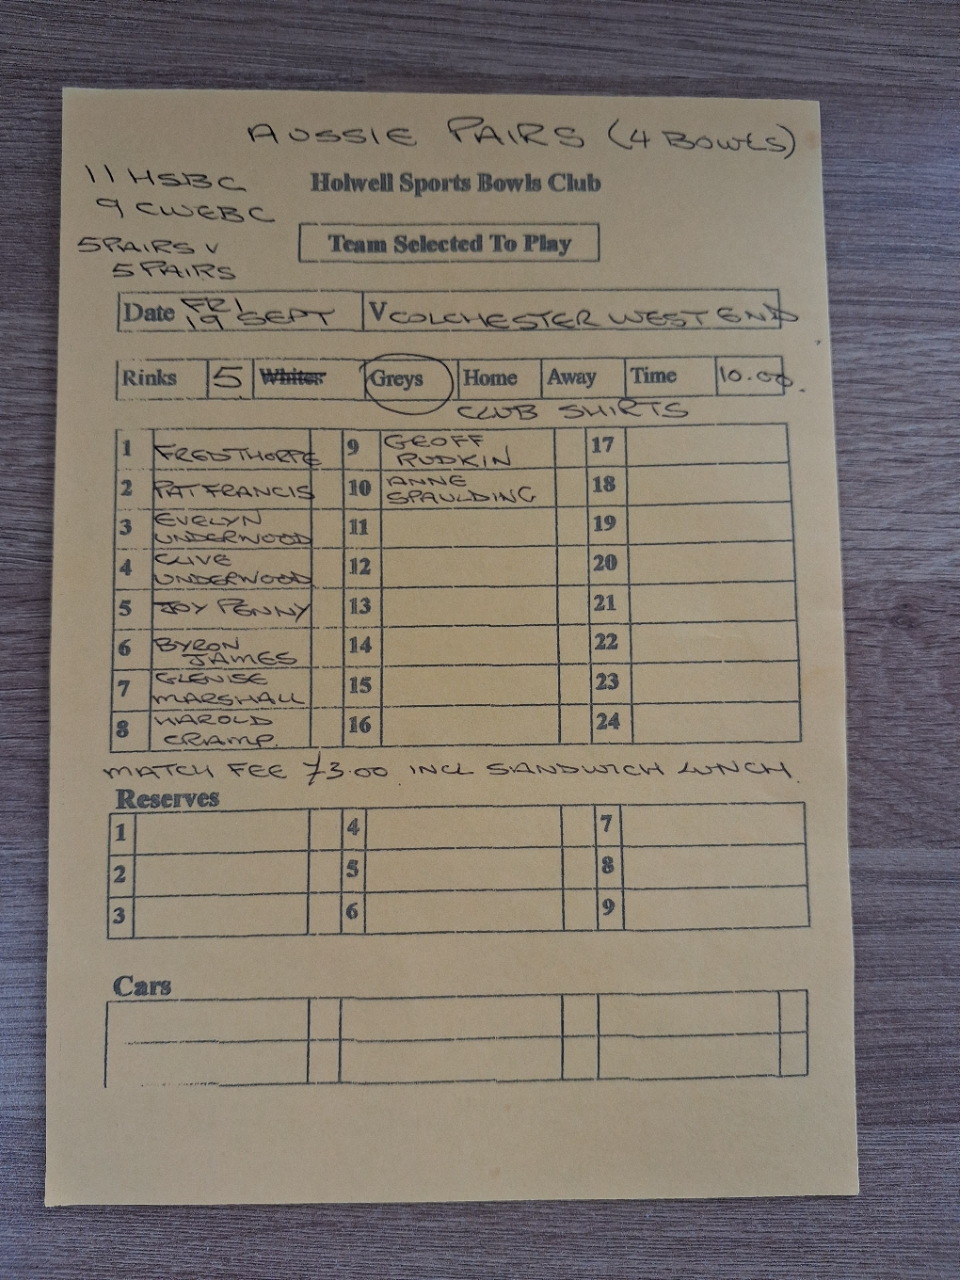 AUSSIE PAIRS (4 BOWLS)
11 HSBC
Holwell Sports Bowls Club
9 CWEBC
5 PAIRS V
Team Selected To Play
5 PAIRS
Date FRI 19 SEPT V COLCHESTER WEST END
Rinks 5 Whites Greys Home Away Time 10.00.
CLUB SHIRTS
1 FRED THORPE 9 GEOFF RUDKIN 17
2 PAT FRANCIS 10 ANNE SPAULDING 18
3 EVELYN UNDERWOOD 11 19
4 CLIVE UNDERWOOD 12 20
5 JOY PENNY 13 21
6 BYRON JAMES 14 22
7 GLENISE MARSHALL 15 23
8 HAROLD CRAMP. 16 24
MATCH FEE £3.00 INCL SANDWICH LUNCH.
Reserves
1 4 7
2 5 8
3 6 9
Cars